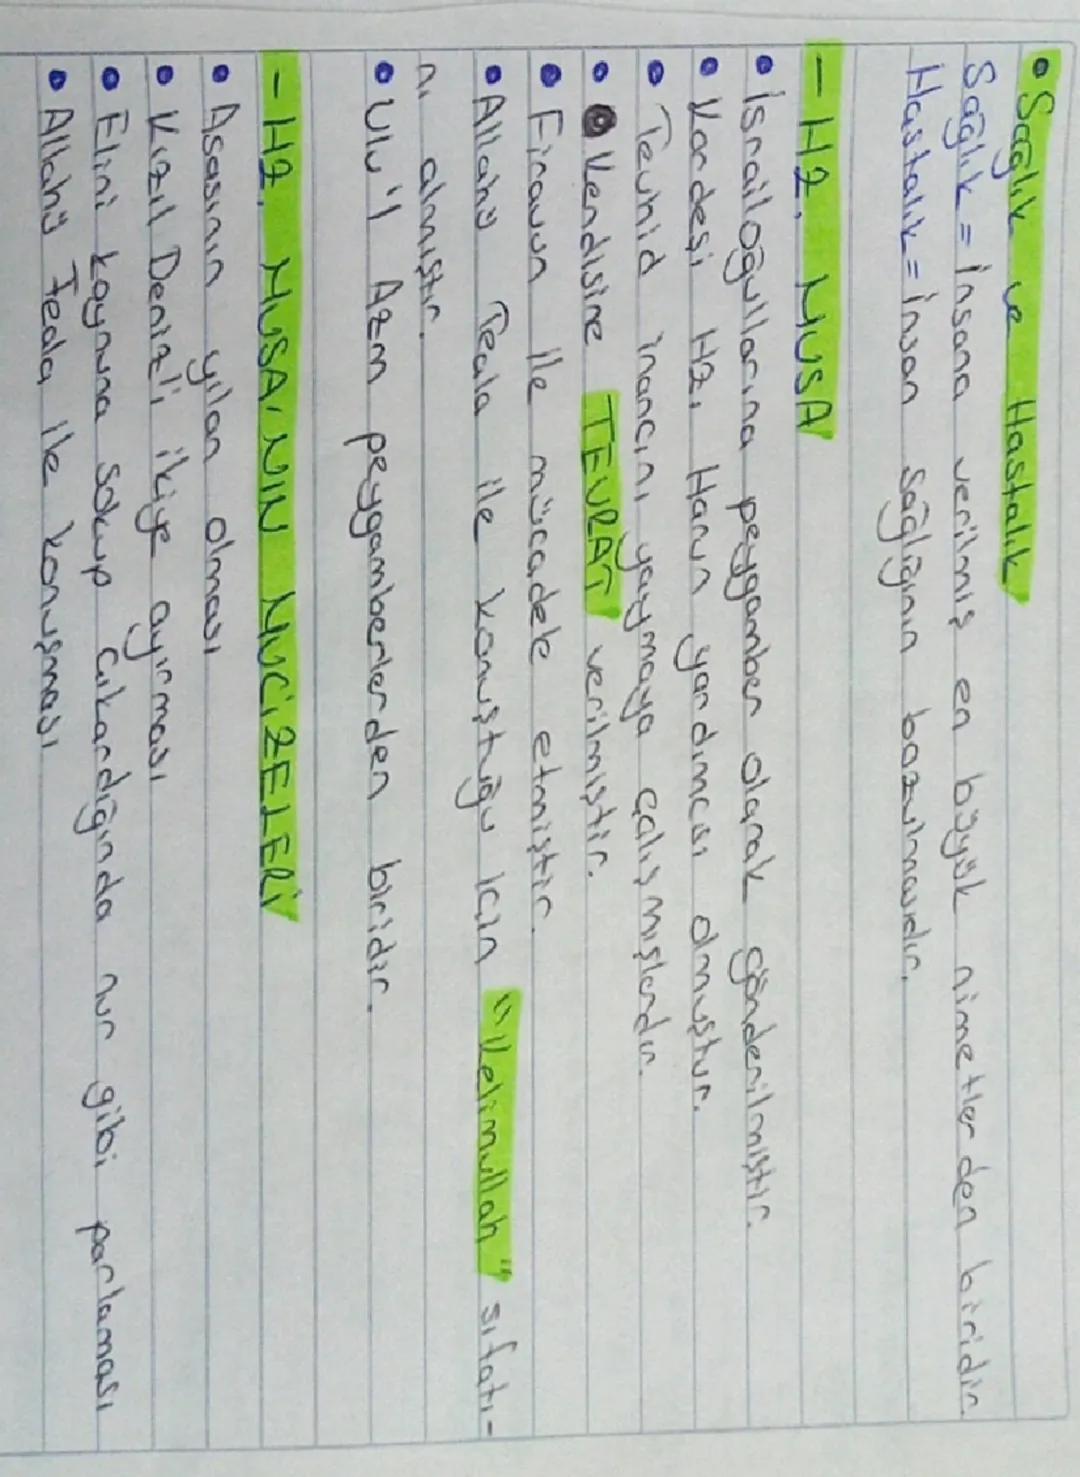 • Sağlık ve Hastalık
Sağlık = İnsana verilmiş en büyük nimetlerden biridir.
Hastalık = İnsan sağlığının bozulmasıdır.
- HZ. MUSA
• İsrailoğullarına peygamber olarak gönderilmiştir.
• Kardeşi Hz. Harun yardımcısı olmuştur.
• Tevhid inancını yaymaya çalışmışlardır.
• Kendisine TEVRAT verilmiştir.
• Firavun ile mücadele etmiştir.
• Allahü Teala ile konuştuğu için "Kelimullah" sıfatı-
nı almıştır.
• Ulu'l Azm peygamberlerden biridir.
- HZ. MUSA'NIN MUCİZELERİ
• Asasının yılan olması
• Kızıl Deniz'i ikiye ayırması
• Elini koynuna sokup çıkardığında nur gibi parlaması
• Allahü Teala ile konuşması